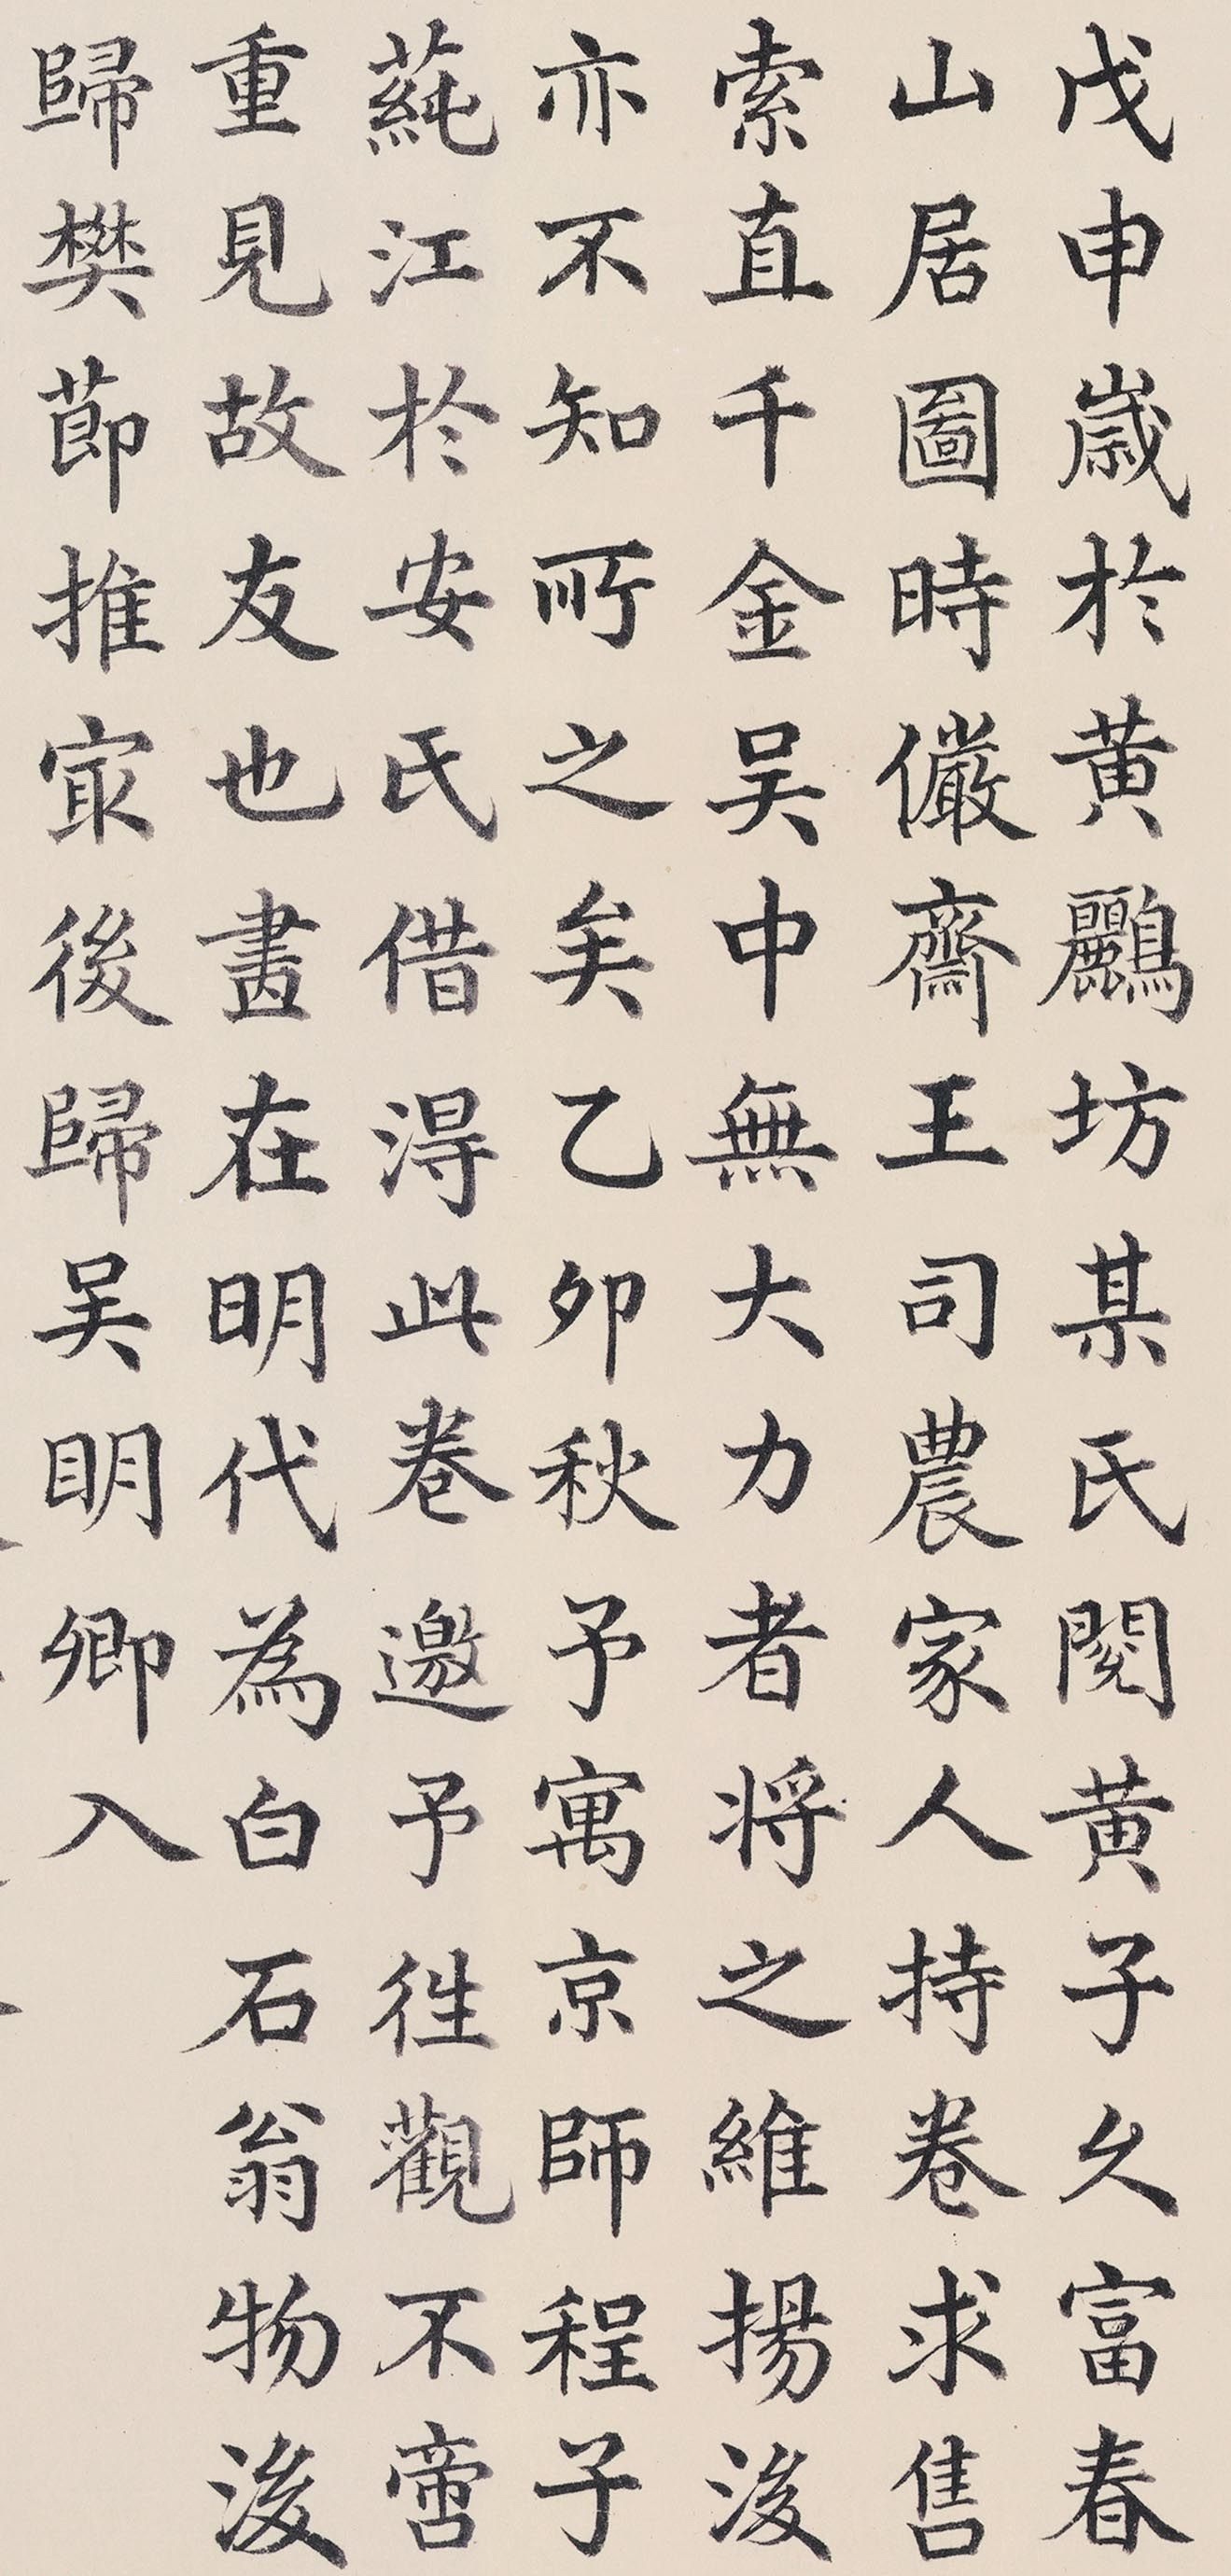 戊申歲於黃鸝坊某氏閱黃子久富春
山居圖時儼齋王司農家人持卷求售
索直千金吴中無大力者将之維揚後
亦不知所之矣乙卯秋予寓京師程子
蒓江於安氏借得此卷邀予往觀不啻
重見故友也畫在明代為白石翁物後
歸樊節推㝡後歸吴明卿入